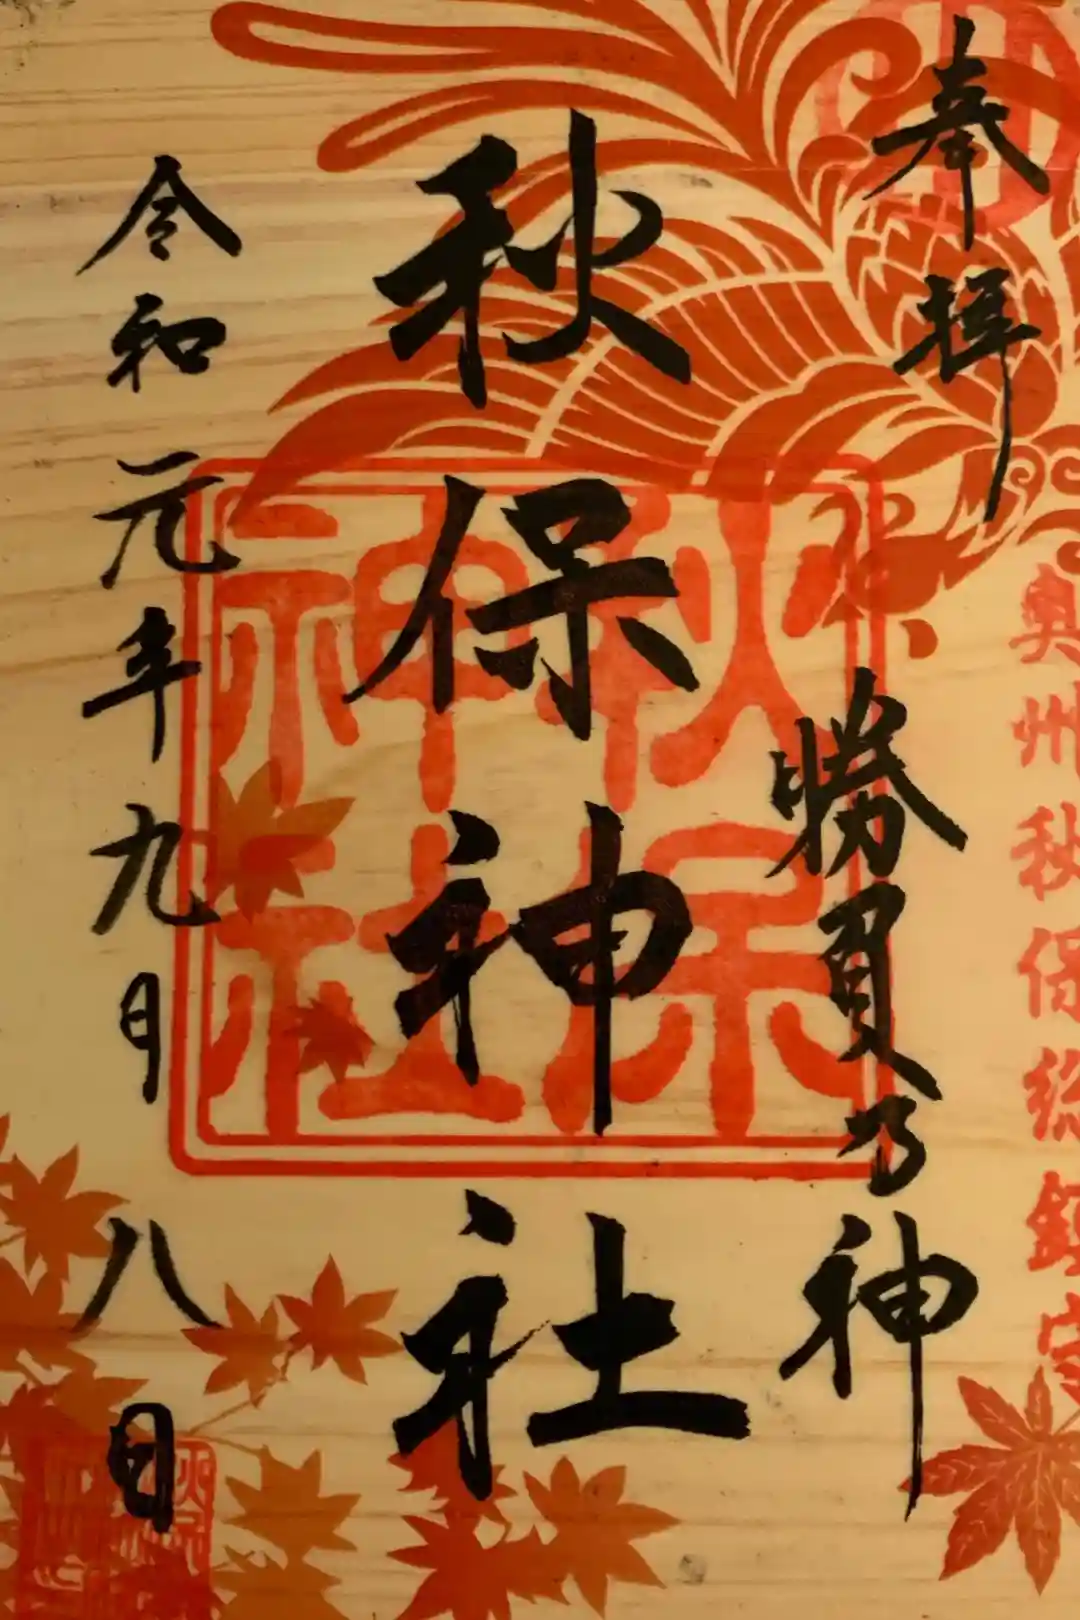 奉拝
奥州秋保総鎮守
勝負乃神
秋保神社
秋保
神社
令和元年九月八日